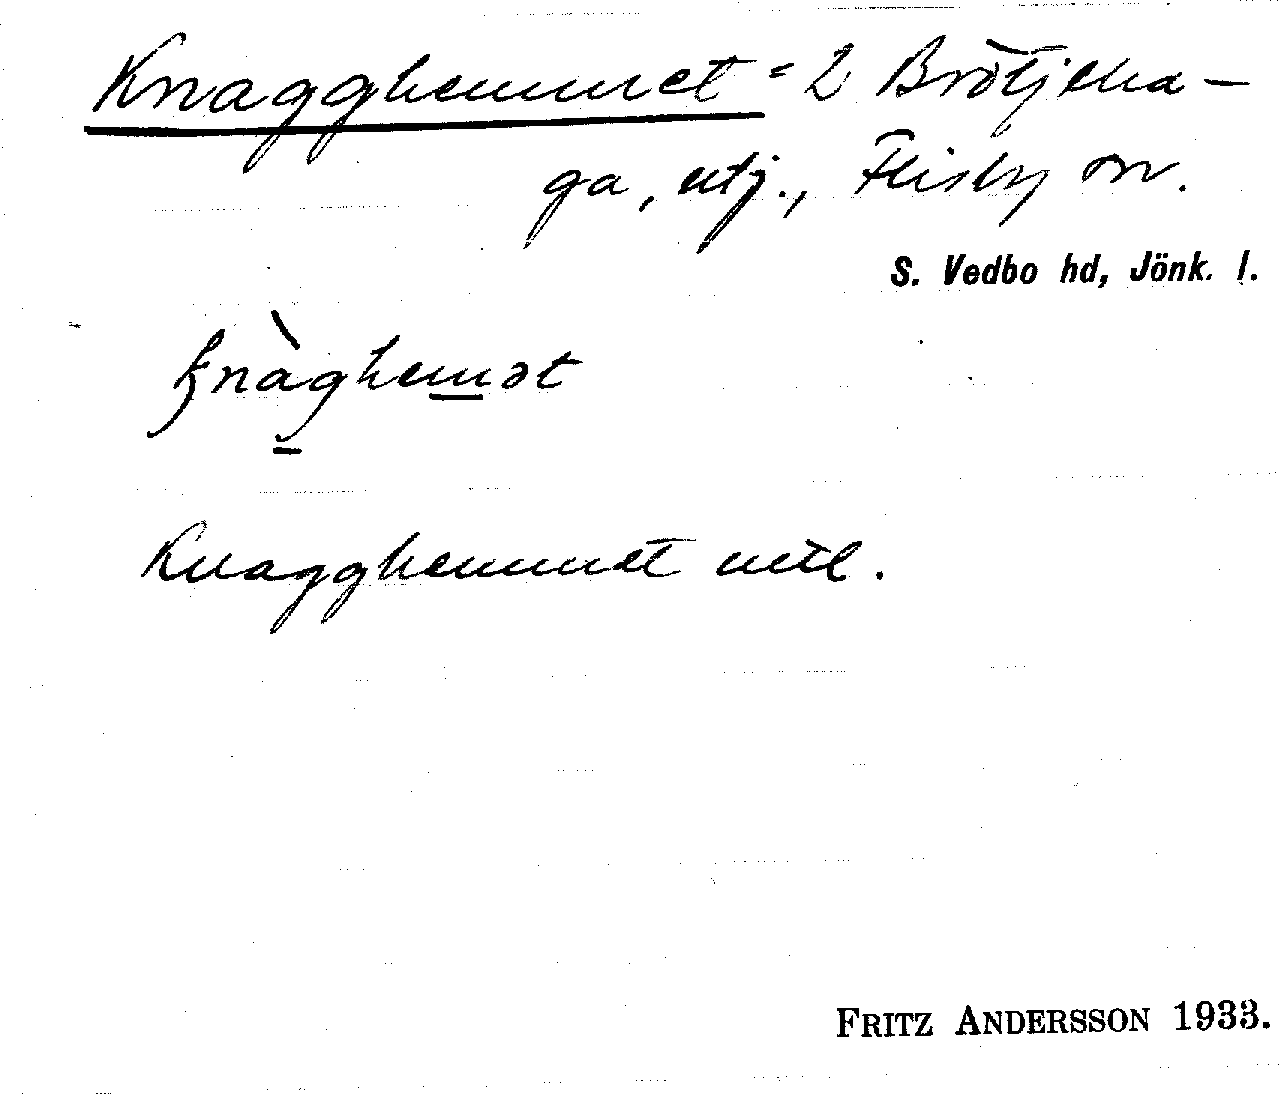 Knagghemmet = 2 Brötjeha-
ga, utj., Flisby sn.
S. Vedbo hd, Jönk. l.
knàghemət
Knagghemmet uttl.
FRITZ ANDERSSON 1933.